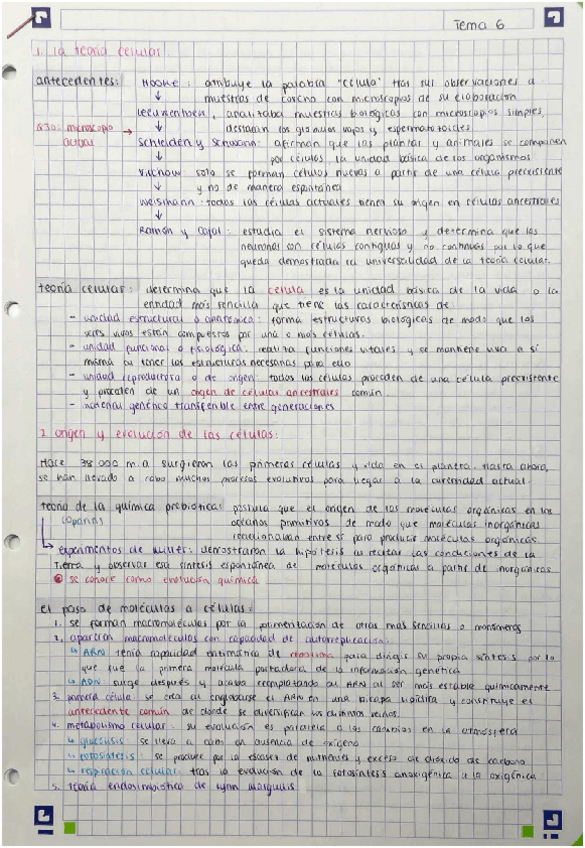 Tema 6
1. la teoría celular.
antecedentes: Hooke: atribuye la palabra "célula" tras sus observaciones a
muestras de corcho con microscopios de su elaboración
Leeuwenhoek, analizaba muestras biológicas con microscopios simples,
destacan los glóbulos rojos y espermatozoides.
1830: microscopio
actual
Schleiden y Schwann: afirman que las plantas y animales se componen
por células, la unidad básica de los organismos
Virchow: solo se forman células nuevas a partir de una célula preexistente
y no de manera espontánea
Weismann: todas las células actuales tienen su origen en células ancestrales
Ramón y Cajal: estudia el sistema nervioso y determina que las
neuronas son células contiguas y no continuas por lo que
queda demostrada la universalidad de la teoría celular.
teoría celular: determina que la célula es la unidad básica de la vida o la
entidad más sencilla que tiene las características de
- unidad estructural o anatómica: forma estructuras biológicas de modo que los
seres vivos están compuestos por una o más células.
- unidad funcional o fisiológica. realiza funciones vitales y se mantiene viva a sí
misma al tener las estructuras necesarias para ello
- unidad reproductora o de origen: todas las células proceden de una célula preexistente
y proceden de un origen de células ancestrales común.
- material genético transferible entre generaciones
2. origen y evolución de las células:
Hace m.a surgieron las primeras células y vida en el planeta. Hasta ahora,
se han llevado a cabo muchos procesos evolutivos para llegar a la actual.
teoría de la química prebiótica: postula que el origen de las moléculas orgánicas en los
(Oparin)
océanos primitivos de modo que moléculas inorgánicas
reaccionaban entre sí para producir moléculas orgánicas.
experimentos de Miller: demostraron la hipótesis al recrear las condiciones de la
Tierra y observar esa síntesis espontánea de moléculas orgánicas a partir de inorgánicas
se conoce como evolución química
el paso de moléculas a células:
1. se forman macromoléculas por la polimerización de otras más sencillas o monómeros
2. aparición macromoléculas con capacidad de autorreplicación.
ARN: tenía capacidad enzimática de para dirigir su propia síntesis por lo
que fue la primera molécula portadora de la información genética
ADN: surge después y acaba reemplazando al ARN al ser más estable químicamente
3. primera célula: se crea al englobarse el ARN en una bicapa lipídica y constituye el
antecedente común de donde se diversifican los distintos reinos.
4. metabolismo celular: su evolución es paralela a los cambios en la atmósfera
glucólisis: se lleva a cabo en ausencia de oxígeno
fotosíntesis: se produce por la escasez de nutrientes y exceso de dióxido de carbono
respiración celular: tras la evolución de la fotosíntesis anoxigénica a la oxigénica
5. teoría endosimbiótica de Lynn Margulis